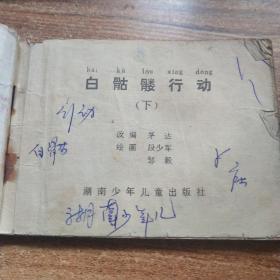 bái kū lóu xíng dòng
白骷髅行动
（下）
行动
白骷
改编 茅达
绘画 段少军
邹毅
湖南少年儿童出版社
湖南少年儿